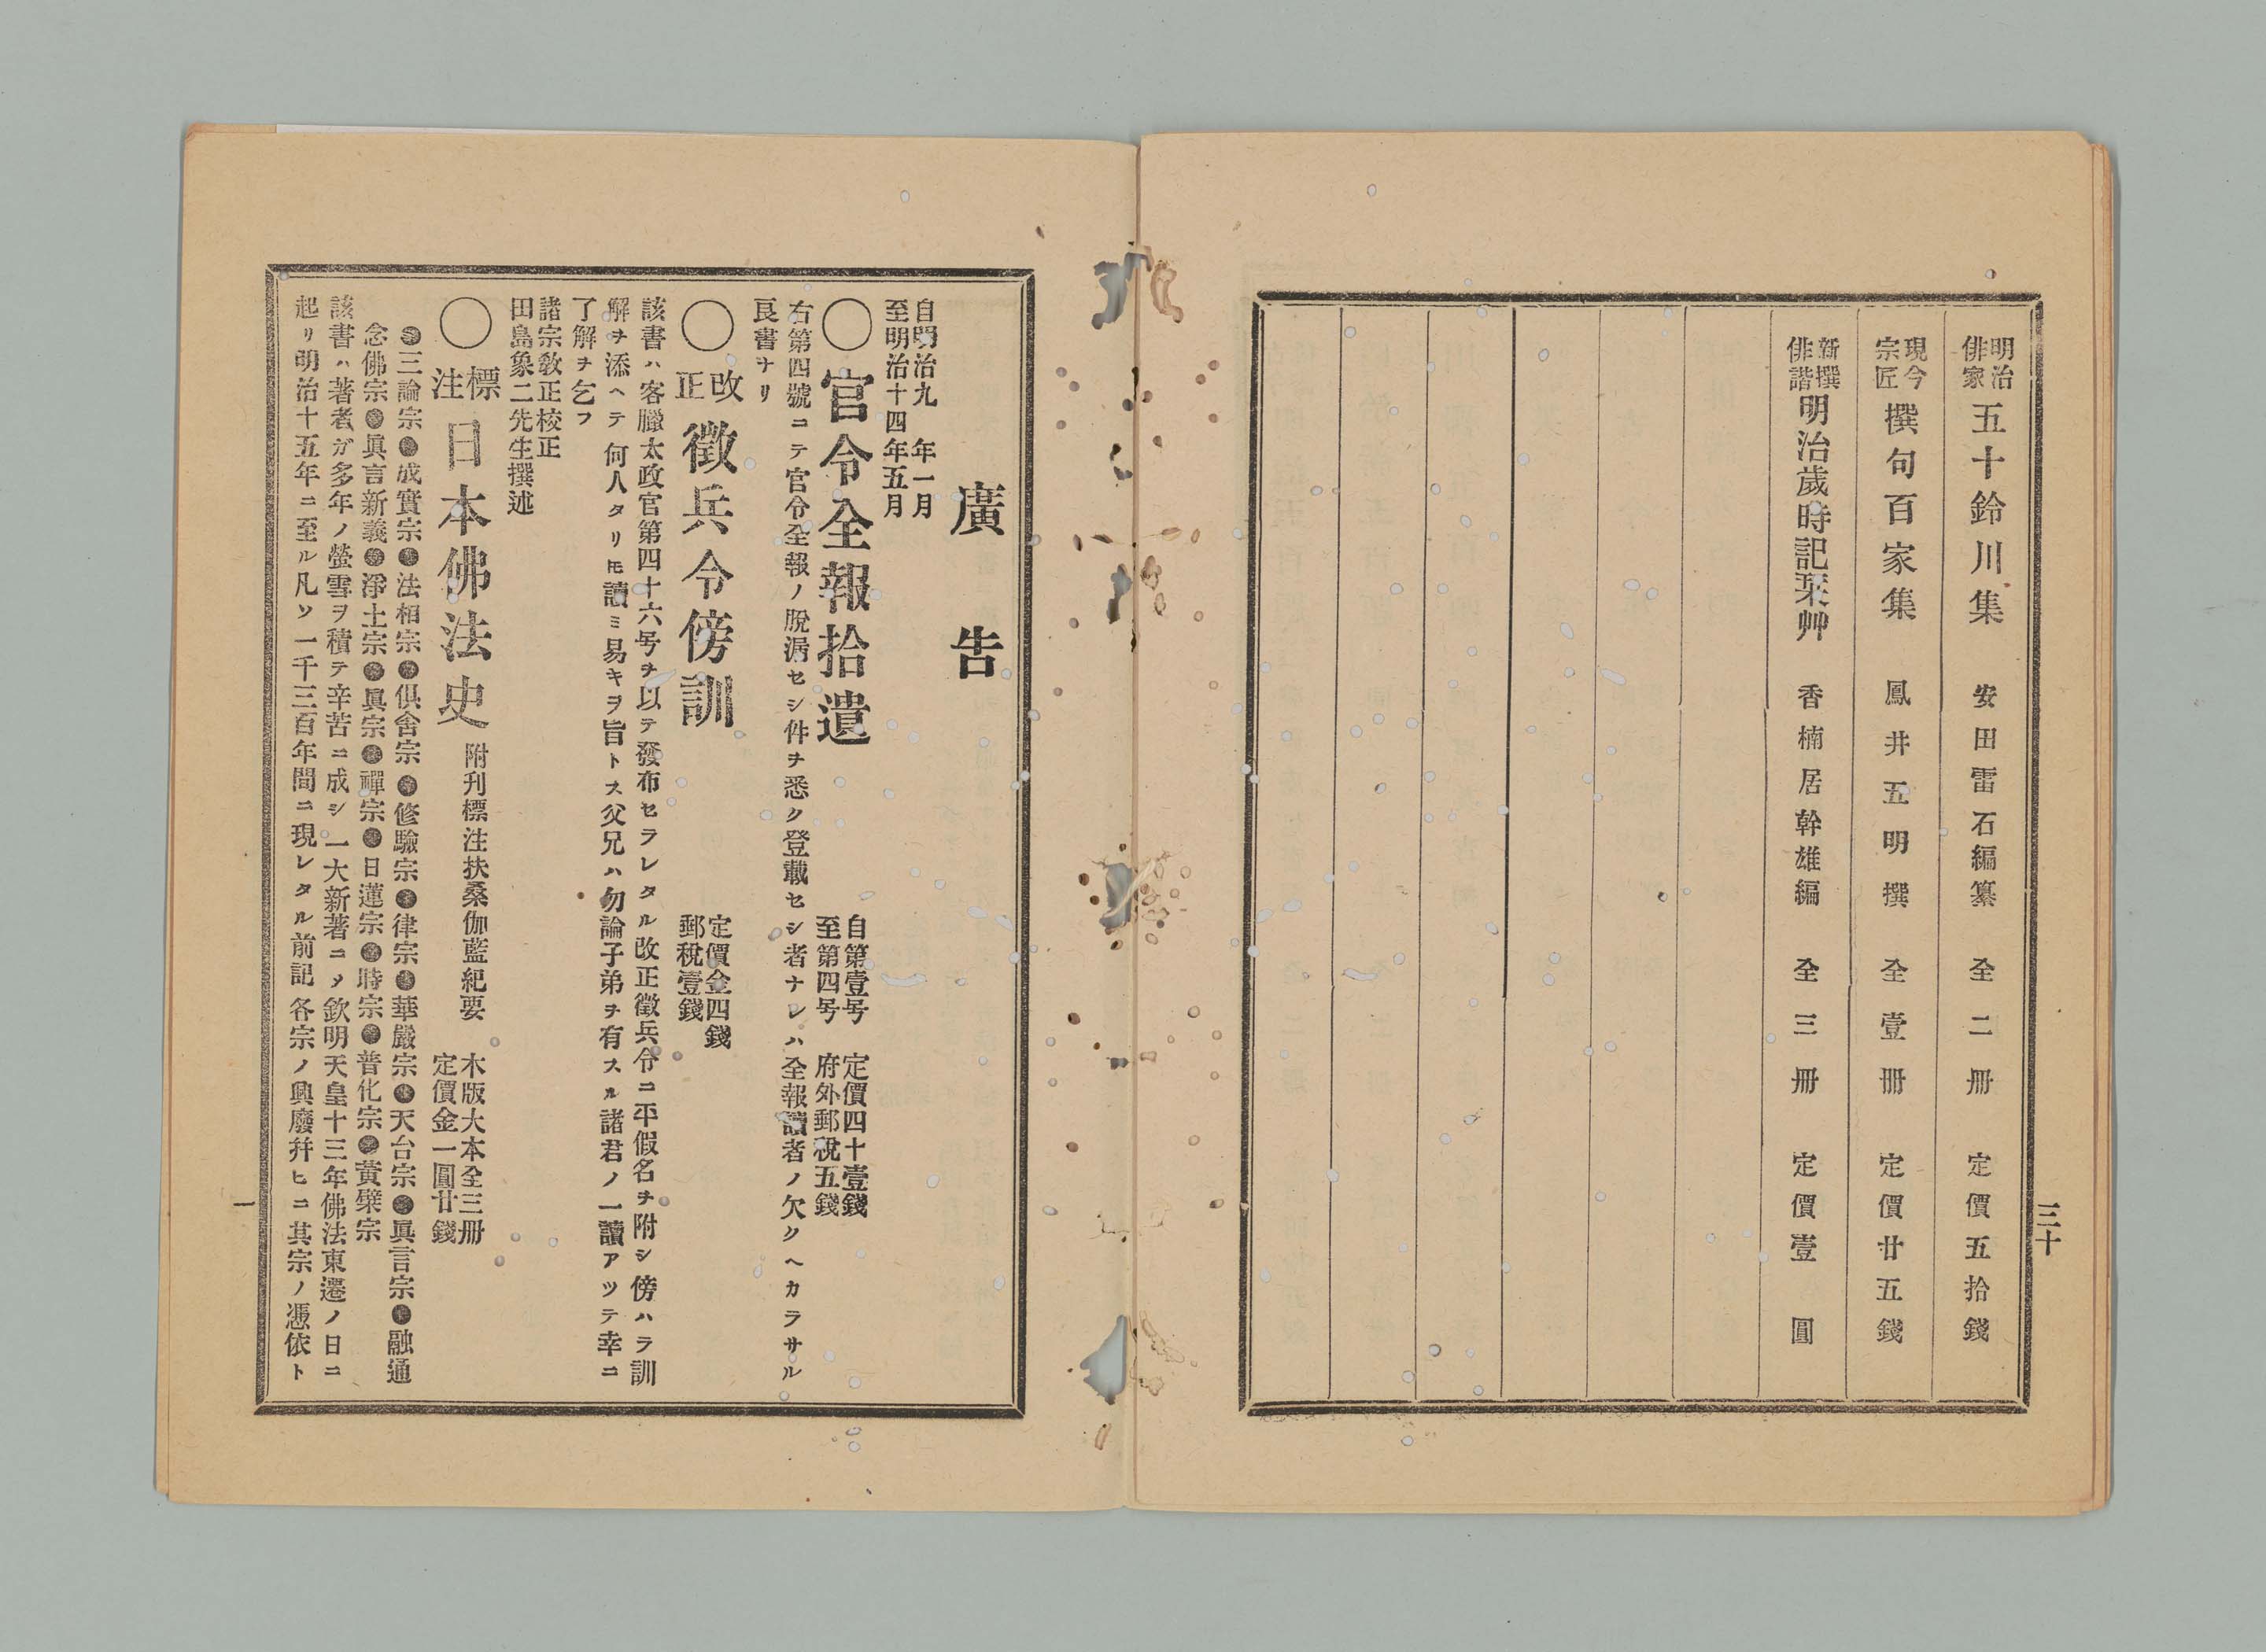 明治俳家 五十鈴川集 安田雷石編纂 全二冊 定價五拾錢
現今宗匠 撰句百家集 鳳井五明撰 全壹冊 定價廿五錢
新撰俳諧 明治歲時記栞艸 香楠居幹雄編 全三冊 定價壹圓
三十
廣告
自明治九年一月
至明治十四年五月
〇官令全報拾遺 自第壹号至第四号 定價四十壹錢府外郵稅五錢
右第四號ニテ官令全報ノ脫漏セシ件ヲ悉ク登載セシ者ナレハ全報讀者ノ欠クヘカラサル
良書ナリ
〇改正 徵兵令傍訓 定價金四錢郵稅壹錢
該書ハ客臘太政官第四十六号ヲ以テ發布セラレタル改正徵兵令ニ平假名ヲ附シ傍ハラ訓
解ヲ添ヘテ何人タリヒ讀ミ易キヲ旨トス父兄ハ勿論子弟ヲ有スル諸君ノ一讀アツテ幸ニ
了解ヲ乞フ
諸宗敎正校正
田島象二先生撰述
〇標注 日本佛法史 附刋標注扶桑伽藍紀要 木版大本全三冊定價金一圓廿錢
●三論宗●成實宗●法相宗●俱舍宗●修驗宗●律宗●華嚴宗●天台宗●眞言宗●融通
念佛宗●眞言新義●淨土宗●眞宗●禪宗●日蓮宗●時宗●普化宗●黃檗宗
該書ハ著者ガ多年ノ螢雪ヲ積テ辛苦ニ成シ一大新著ニメ欽明天皇十三年佛法東遷ノ日ニ
起リ明治十五年ニ至ル凡ソ一千三百年間ニ現レタル前記各宗ノ興廢幷ヒニ其宗ノ憑依ト
一